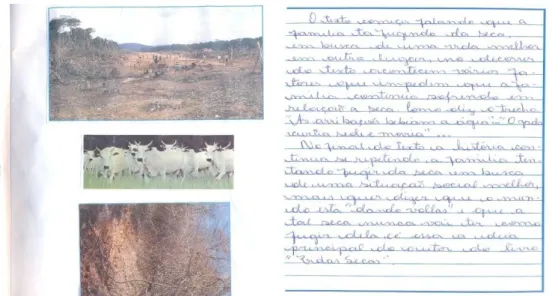 O texto começa falando que a
familia ta fugindo da seca
em busca de uma vida melhor
em outro lugar, no decorrer
do texto acontecem vários fa-
tores que impedem que a fa-
milia continue sofrendo em
relação a seca. Como diz o trecho
"As arribações bebiam a água" "O gado
curtia sede e morria"...
No final do texto a história con-
tinua se repetindo a familia ten-
tando fugir da seca em busca
de uma situação social melhor,
mais quer dizer que o mun-
do esta "dando voltas" e que a
tal seca nunca vais ter como
fugir dela é essa a ideia
principal do autor do livro
"Vidas Secas".